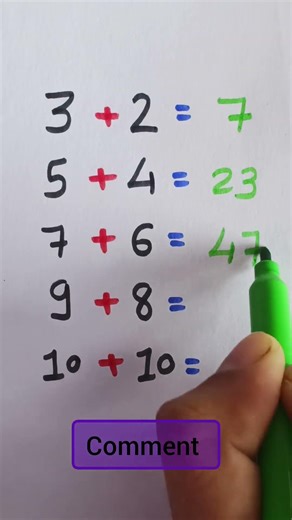 3 + 2 = 7
5 + 4 = 23
7 + 6 = 47
9 + 8 =
10 + 10 =
Comment